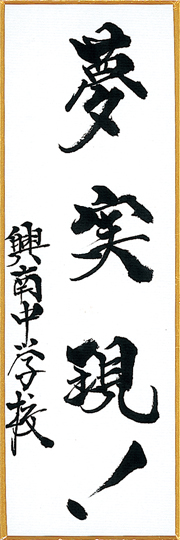 夢実現!
興南中学校